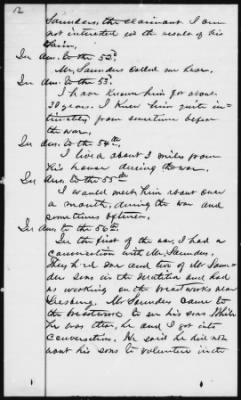 12
Saunders, the claimant I am
not interested in the result of his
claim.
In ans. to the 52d.
Mr. Saunders called me here.
In ans. to the 53d.
I have known him for about
30 years. I knew him quite in-
timately from sometime before
the war.
In ans. to the 54th.
I lived about 3 miles from
his house during the war.
In ans. to the 55th
I would meet him about once
a month, during the war and
sometimes oftener.
In ans to the 56th
In the first of the war, I had a
conversation with Mr. Saunders.
They had me and two of Mr Saun-
ders sons in the Militia and had
us working on the breastworks near
Leesburg. Mr Saunders came to
the breastworks to see his sons. While
he was there, he and I got into
conversation. He said he did not
want his sons to volunteer in the